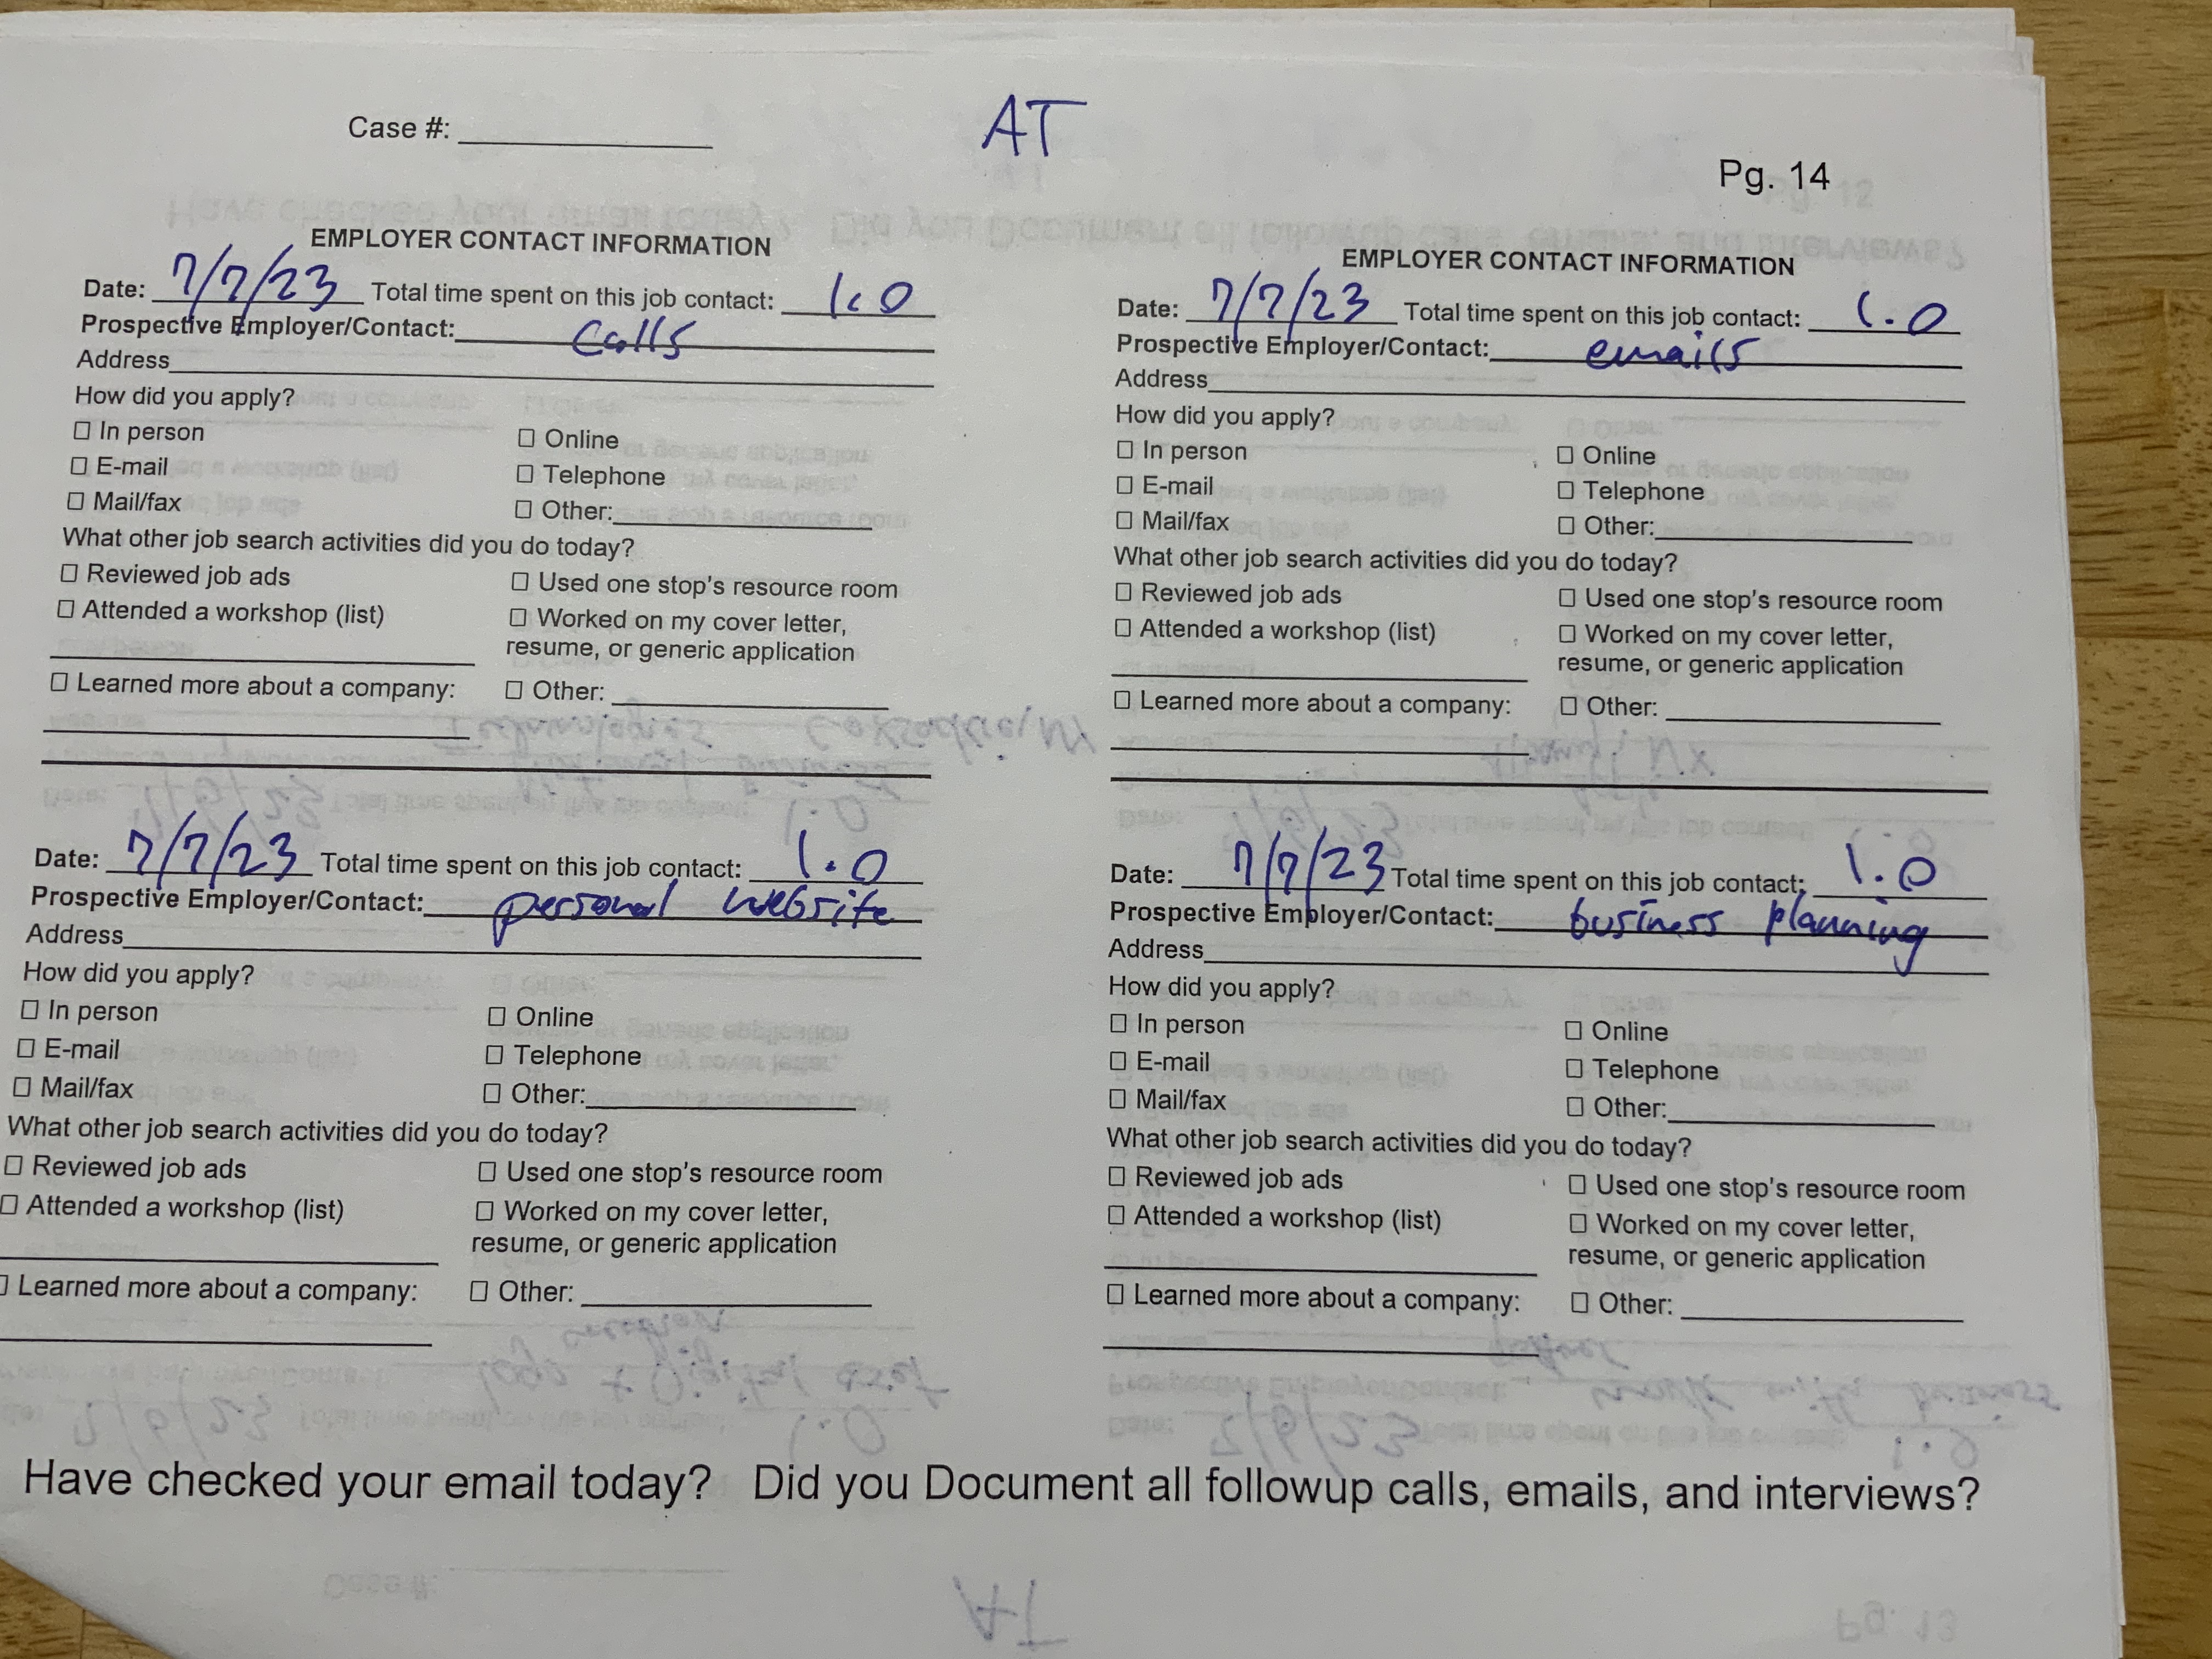 Case #:
AT
Pg. 14
EMPLOYER CONTACT INFORMATION
Date: 7/7/23 Total time spent on this job contact: 1.0
Prospective Employer/Contact: Calls
Address
How did you apply?
☐ In person ☐ Online
☐ E-mail ☐ Telephone
☐ Mail/fax ☐ Other:
What other job search activities did you do today?
☐ Reviewed job ads ☐ Used one stop's resource room
☐ Attended a workshop (list) ☐ Worked on my cover letter,
resume, or generic application
☐ Learned more about a company: ☐ Other:
EMPLOYER CONTACT INFORMATION
Date: 7/7/23 Total time spent on this job contact: 1.0
Prospective Employer/Contact: emails
Address
How did you apply?
☐ In person ☐ Online
☐ E-mail ☐ Telephone
☐ Mail/fax ☐ Other:
What other job search activities did you do today?
☐ Reviewed job ads ☐ Used one stop's resource room
☐ Attended a workshop (list) ☐ Worked on my cover letter,
resume, or generic application
☐ Learned more about a company: ☐ Other:
Date: 7/7/23 Total time spent on this job contact: 1.0
Prospective Employer/Contact: personal website
Address
How did you apply?
☐ In person ☐ Online
☐ E-mail ☐ Telephone
☐ Mail/fax ☐ Other:
What other job search activities did you do today?
☐ Reviewed job ads ☐ Used one stop's resource room
☐ Attended a workshop (list) ☐ Worked on my cover letter,
resume, or generic application
☐ Learned more about a company: ☐ Other:
Date: 7/7/23 Total time spent on this job contact: 1.0
Prospective Employer/Contact: business planning
Address
How did you apply?
☐ In person ☐ Online
☐ E-mail ☐ Telephone
☐ Mail/fax ☐ Other:
What other job search activities did you do today?
☐ Reviewed job ads ☐ Used one stop's resource room
☐ Attended a workshop (list) ☐ Worked on my cover letter,
resume, or generic application
☐ Learned more about a company: ☐ Other:
Have checked your email today? Did you Document all followup calls, emails, and interviews?